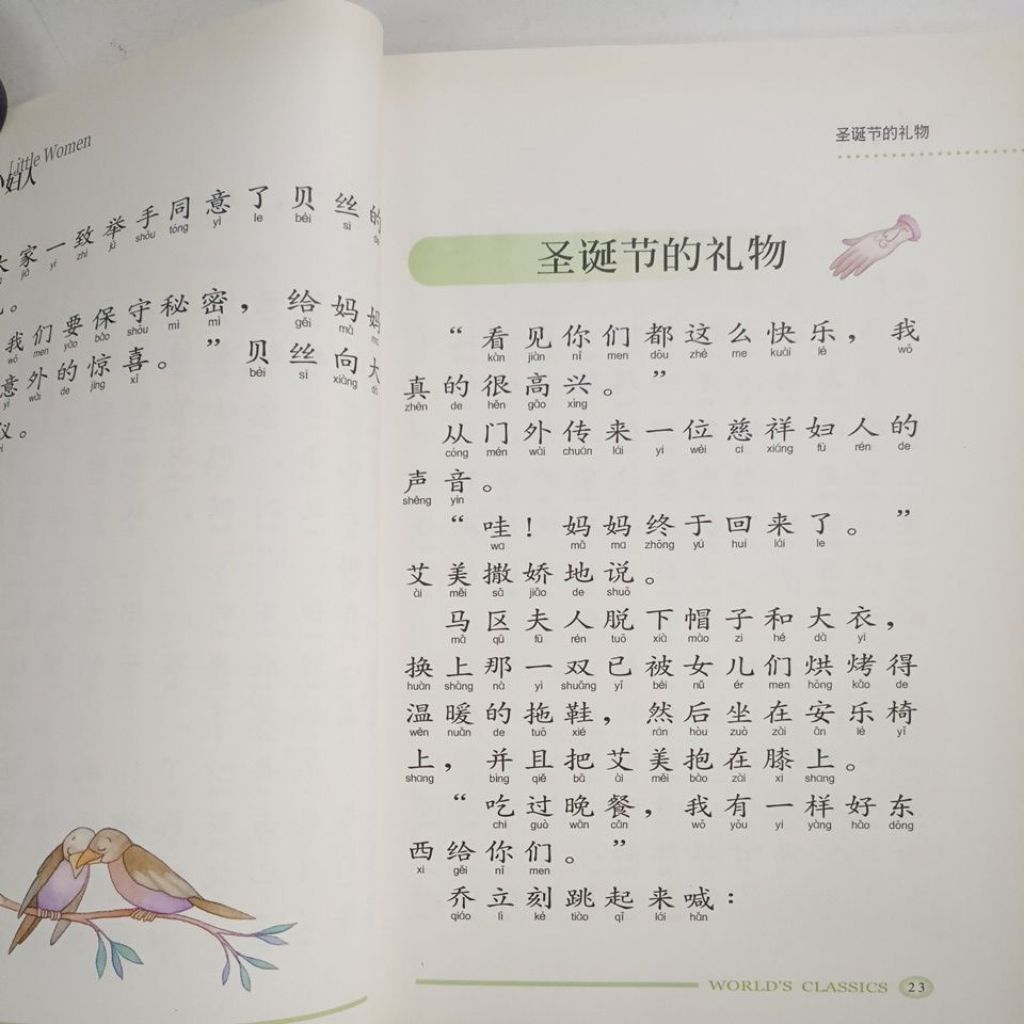 Little Women
妇人
家一致举手同意了贝丝的
jiā yí zhì jǔ shǒu tóng yì le bèi sī de
。
我们要保守秘密，给妈妈
wǒ men yào bǎo shǒu mì mì gěi mā ma
意外的惊喜。”贝丝向大
yì wài de jīng xǐ bèi sī xiàng dà
议。
圣诞节的礼物
圣诞节的礼物
“看见你们都这么快乐，我
kàn jiàn nǐ men dōu zhè me kuài lè wǒ
真的很高兴。”
zhēn de hěn gāo xìng
从门外传来一位慈祥妇人的
cóng mén wài chuán lái yí wèi cí xiáng fù rén de
声音。
shēng yīn
“哇！妈妈终于回来了。”
wa mā ma zhōng yú huí lái le
艾美撒娇地说。
ài měi sā jiāo de shuō
马区夫人脱下帽子和大衣，
mǎ qū fū rén tuō xià mào zi hé dà yī
换上那一双已被女儿们烘烤得
huàn shàng nà yì shuāng yǐ bèi nǚ ér men hōng kǎo de
温暖的拖鞋，然后坐在安乐椅
wēn nuǎn de tuō xié rán hòu zuò zài ān lè yǐ
上，并且把艾美抱在膝上。
shang bìng qiě bǎ ài měi bào zài xī shang
“吃过晚餐，我有一样好东
chī guò wǎn cān wǒ yǒu yí yàng hǎo dōng
西给你们。”
xi gěi nǐ men
乔立刻跳起来喊：
qiáo lì kè tiào qǐ lái hǎn
WORLD'S CLASSICS 23